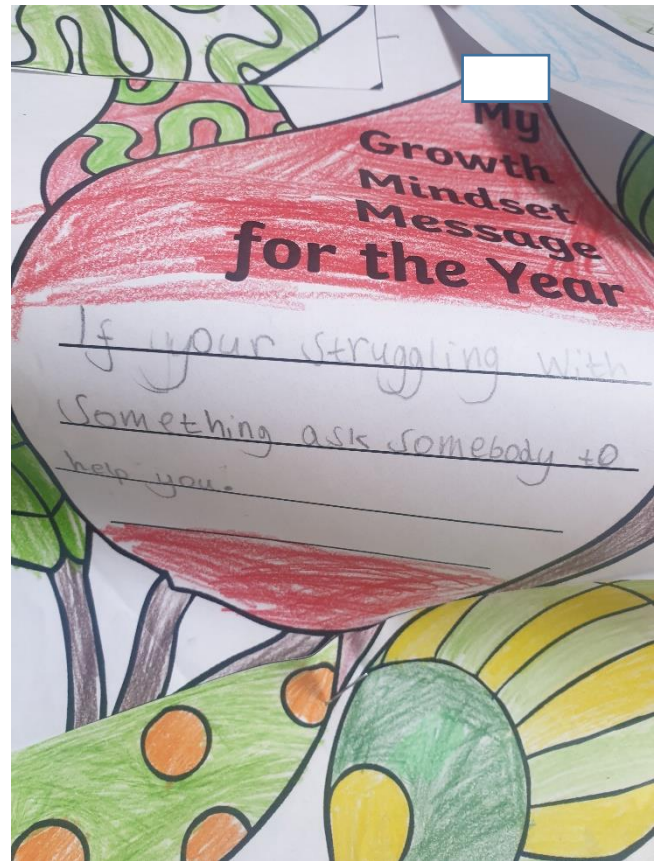 My
Growth
Mindset
Message
for the Year
If your struggling with
something ask somebody to
help you.